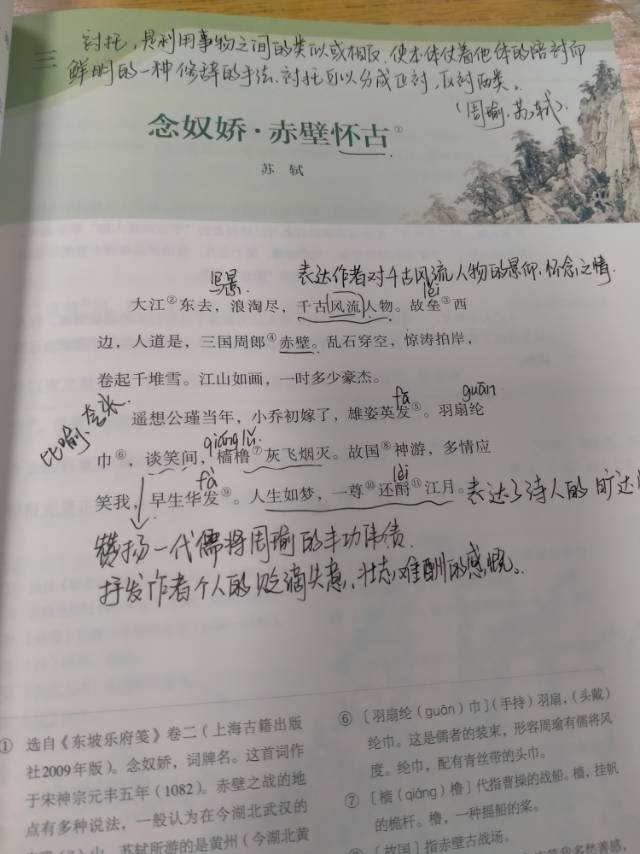 三
衬托,是利用事物之间的类似或相反,使本体仗着他体的陪衬而
鲜明的一种修辞的手法.衬托可以分成正衬,反衬两类。
(周瑜,苏轼).
念奴娇·赤壁怀古①
苏 轼
写景.
表达作者对千古风流人物的景仰,怀念之情.
lěi
大江②东去,浪淘尽,千古风流人物。故垒③西
边,人道是,三国周郎④赤壁。乱石穿空,惊涛拍岸,
卷起千堆雪。江山如画,一时多少豪杰。
fā
guān
遥想公瑾当年,小乔初嫁了,雄姿英发⑤。羽扇纶
比喻 夸张.
qiáng lǔ
巾⑥,谈笑间,樯橹⑦灰飞烟灭。故国⑧神游,多情应
fà
lèi
笑我,早生华发⑨。人生如梦,一尊⑩还酹⑪江月。
表达了诗人的旷达
赞扬一代儒将周瑜的丰功伟绩.
抒发作者个人的贬谪失意,壮志难酬的感慨。
① 选自《东坡乐府笺》卷二(上海古籍出版
社2009年版)。念奴娇,词牌名。这首词作
于宋神宗元丰五年(1082)。赤壁之战的地
点有多种说法,一般认为在今湖北武汉的
山,苏轼所游的是黄州(今湖北黄
⑥ [羽扇纶(guān)巾](手持)羽扇,(头戴)
纶巾。这是儒者的装束,形容周瑜有儒将风
度。纶巾,配有青丝带的头巾。
⑦ [樯(qiáng)橹]代指曹操的战船。樯,挂帆
的桅杆。橹,一种摇船的桨。
[故国]指赤壁古战场。